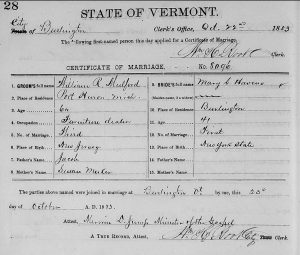 28
STATE OF VERMONT.
City
Town of Burlington Clerk's Office, Oct. 22nd 1873
The following first-named person this day applied for a Certificate of Marriage.
Clerk.
CERTIFICATE OF MARRIAGE. No. 8096
1 GROOM'S full NAME William R Mulford
2 Place of Residence Port Huron Mich
3 Age 60
4 Occupation Furniture dealer
5 No. of Marriage Third
6 Place of Birth New Jersey
7 Father's Name Jacob
8 Mother's Name Susan
9 BRIDE'S full NAME Mary C Havens
Maiden name, if a widow
10 Place of Residence Burlington
11 Age 41
12 No. of Marriage First
13 Place of Birth New York State
14 Father's Name
15 Mother's Name
The parties above named were joined in marriage at Burlington Vt by me, this 22d
day of October A. D. 1873.
Attest, Jump Minister of the Gospel
A TRUE RECORD, ATTEST, City Town Clerk.